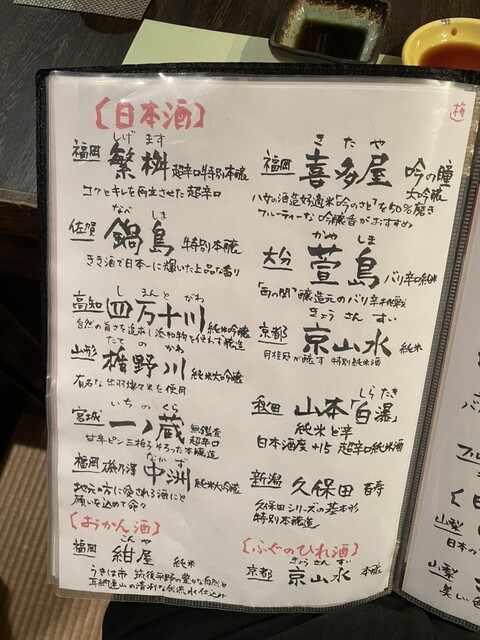 【日本酒】
しげ ます
福岡 繁桝 超辛口特別本醸
コクとキレを両立させた超辛口
なべ しま
佐賀 鍋島 特別本醸
きき酒で日本一に輝いた上品な香り
し まん と がわ
高知 四万十川 純米吟醸
自然の旨さを追求し添加物を使わず醸造
たて の かわ
山形 楯野川 純米大吟醸
有名な出羽燦々米を使用
いち の くら
宮城 一ノ蔵 無鑑査
超辛口
甘辛ピン三拍子そろった本醸造
なか す
福岡 磯乃澤 中洲 純米大吟醸
地元の方に愛される酒にと
願いを込めて命名
【おかん酒】
こん や
福岡 紺屋 純米
うきは市 筑後平野の豊かな自然と
耳納連山の清冽な伏流水仕込み
き た や
福岡 喜多屋 吟の瞳
大吟醸
八女の酒造好適米「吟のさと」を50%磨き
フルーティーな吟醸香がおすすめ
かや しま
大分 萱島 バリ辛純米
「西の関」醸造元のバリ辛
きょう さん すい
京都 京山水 純米
月桂冠が醸す 特別純米酒
しら たき
秋田 山本「白瀑」
純米ど辛
日本酒度+15 超辛口純米酒
新潟 久保田 百寿
久保田シリーズの基本形
特別本醸造
【ふぐのひれ酒】
きょう さん すい
京都 京山水 本醸
山梨
日本の
山梨
美しい